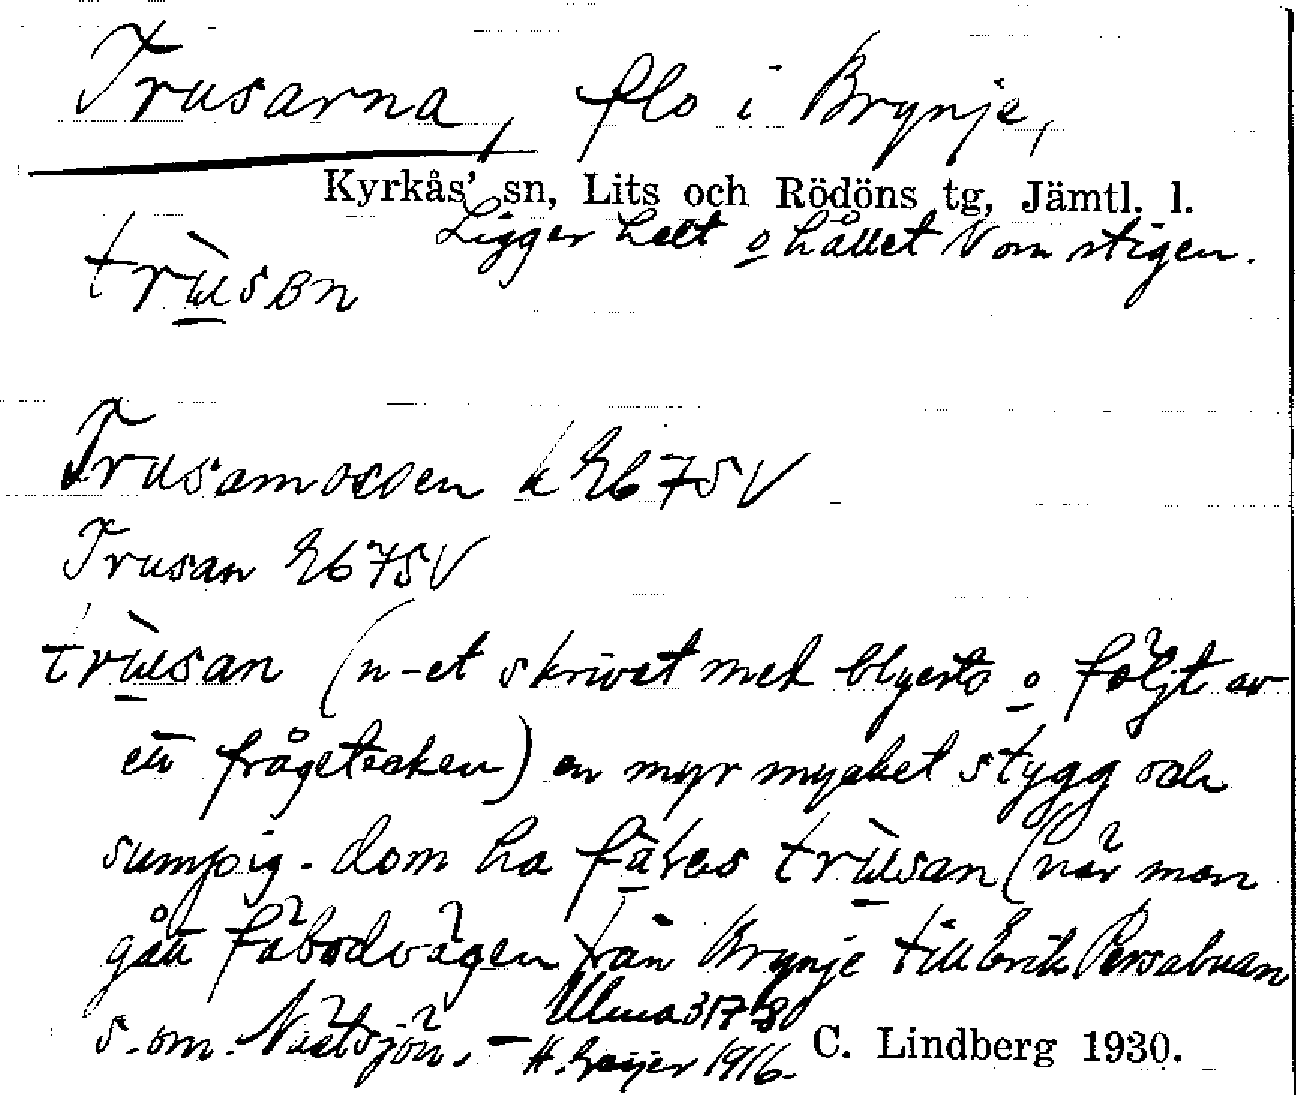 Trusarna, flo i Brynje,
Kyrkås' sn, Lits och Rödöns tg, Jämtl. l.
Ligger helt o hållet V om stigen.
trùsɐn
Trusamossen k Eb 75 V
Trusan Eb 75 V
trùsan (n-et skrivet med blyerts o följt av
ett frågetecken) en myr mycket stygg och
sumpig. dom ha trùsan (när man
gått fäbodvägen från Brynje till Erik Persabuan
s. om. Nästsjön. – Ulma 317:8
H. Geijer 1916.
C. Lindberg 1930.